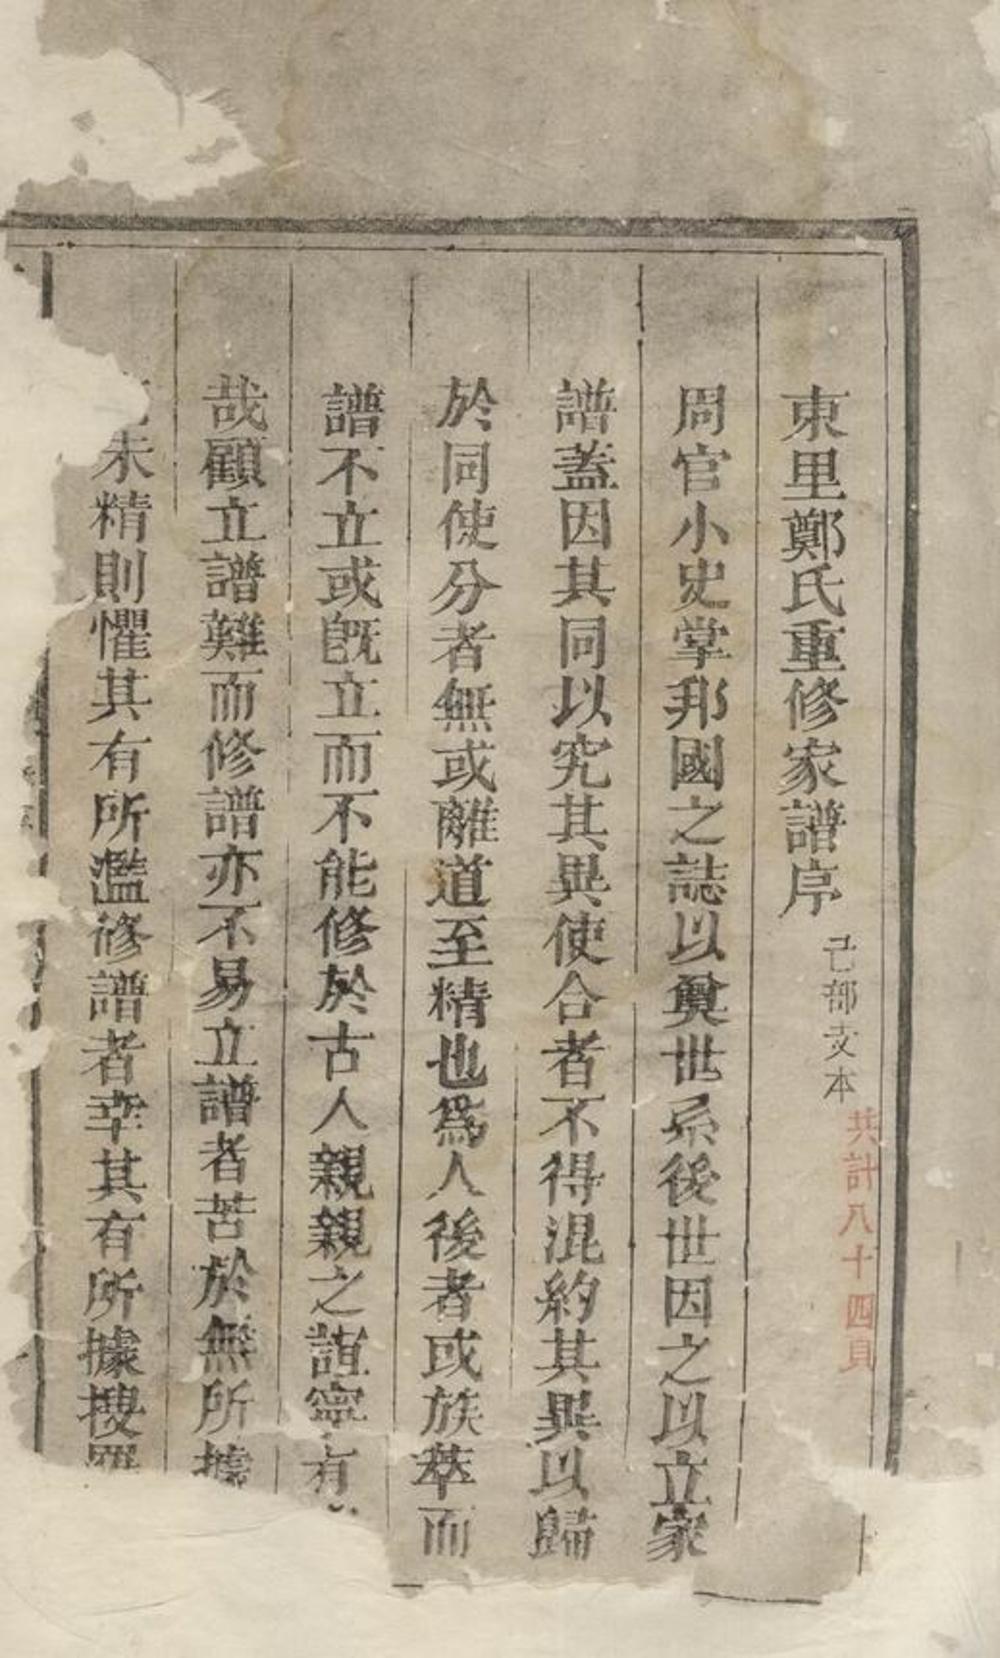 東里鄭氏重修家譜序
己部文本
共計八十四頁
周官小史掌邦國之誌以奠世系後世因之以立家
譜蓋因其同以究其異使合者不得混約其異以歸
於同使分者無或離道至精也爲人後者或族萃而
譜不立或旣立而不能修於古人親親之誼寧有
哉顧立譜難而修譜亦不易立譜者苦於無所據
未精則懼其有所濫修譜者幸其有所據搜羅